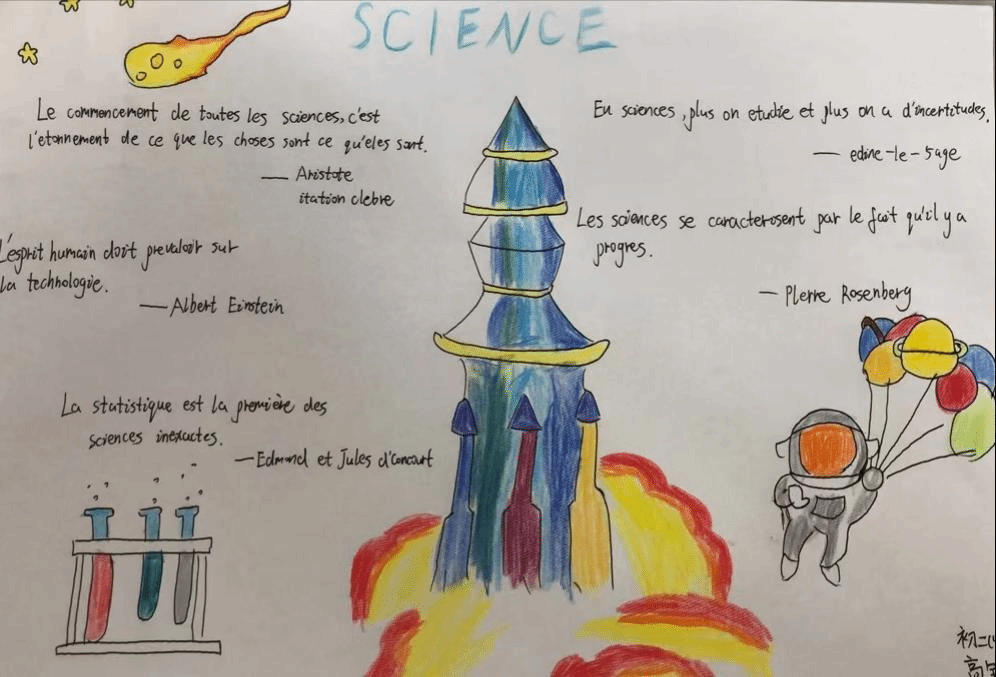 SCIENCE
Le commencement de toutes les sciences, c'est
l'etonnement de ce que les choses sont ce qu'eles sont.
— Aristote
itation clebre
En sciences, plus on etudie et plus on a d'incertitudes.
— edine-le-sage
Les sciences se caracterosent par le fait qu'il y a
progres.
— Pierre Rosenberg
L'esprit humain doit prevaloir sur
la technologie.
— Albert Einstein
La statistique est la première des
sciences inexactes.
— Edmond et Jules d'Concourt
初二
高